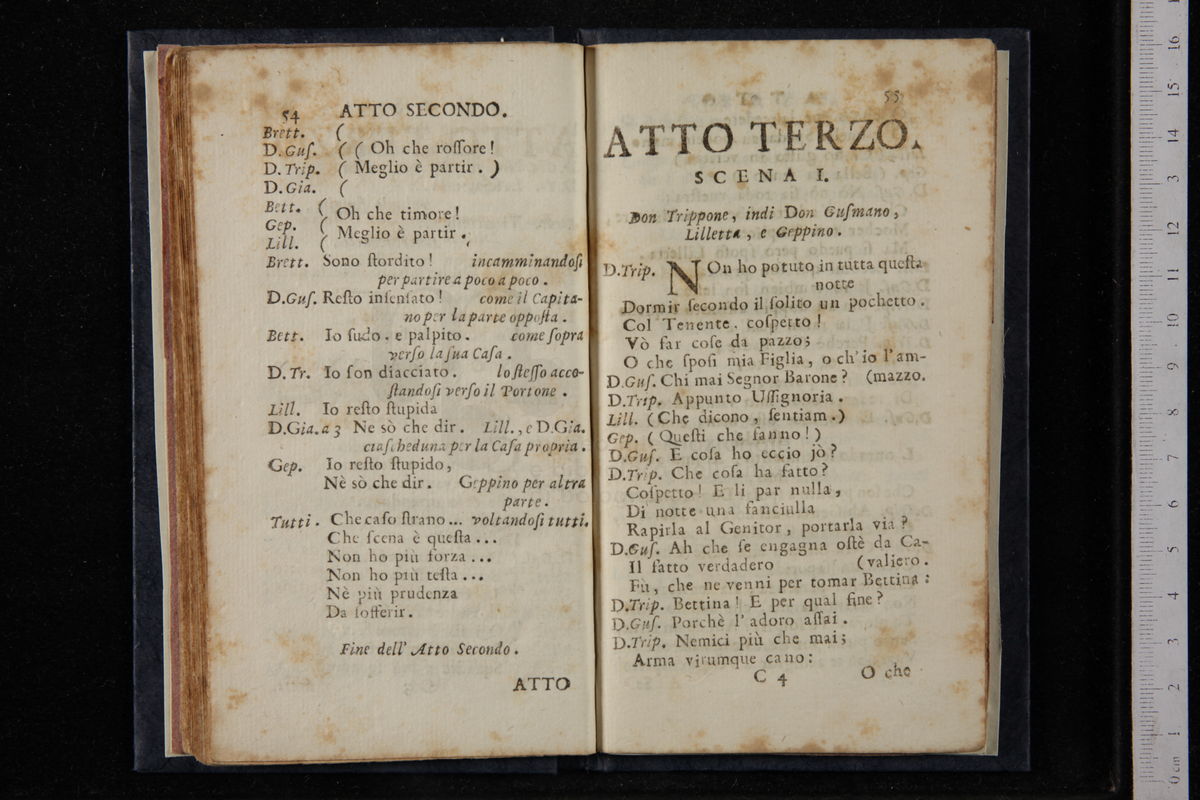 54 ATTO SECONDO.
Brett. (
D.Guſ. ( ( Oh che roſſore!
D.Trip. ( Meglio è partir. )
D.Gia. (
Bett. ( Oh che timore!
Gep. ( Meglio è partir.
Lill. (
Brett. Sono ſtordito! incamminandoſi
per partire a poco a poco.
D.Guſ. Reſto inſenſato! come il Capita-
no per la parte oppoſta.
Bett. Io ſudo, e palpito. come ſopra
verſo la ſua Caſa.
D.Tr. Io ſon diacciato. lo ſteſſo acco-
ſtandoſi verſo il Portone.
Lill. Io reſto ſtupida
D.Gia.a 3 Ne sò che dir. Lill., e D.Gia.
ciaſcheduna per la Caſa propria.
Gep. Io reſto ſtupido,
Nè sò che dir. Geppino per altra
parte.
Tutti. Che caſo ſtrano... voltandoſi tutti.
Che ſcena è queſta...
Non ho più forza...
Non ho più teſta...
Nè più prudenza
Da ſofferir.
Fine dell' Atto Secondo.
ATTO
55
ATTO TERZO.
SCENA I.
Don Trippone, indi Don Guſmano,
Lilletta, e Geppino.
D.Trip. NOn ho potuto in tutta queſta
notte
Dormir ſecondo il ſolito un pochetto.
Col Tenente, coſpetto!
Vò far coſe da pazzo;
O che ſpoſi mia Figlia, o ch' io l'am-
D.Guſ. Chi mai Segnor Barone? (mazzo.
D.Trip. Appunto Uſſignoria.
Lill. (Che dicono, ſentiam.)
Gep. (Queſti che fanno!)
D.Guſ. E coſa ho eccio jò?
D.Trip. Che coſa ha fatto?
Coſpetto! E li par nulla,
Di notte una fanciulla
Rapirla al Genitor, portarla via?
D.Guſ. Ah che ſe engagna oſtè da Ca-
Il fatto verdadero (valiero.
Fù, che ne venni per tomar Bettina:
D.Trip. Bettina! E per qual fine?
D.Guſ. Porchè l' adoro aſſai.
D.Trip. Nemici più che mai;
Arma virumque cano:
C 4 O che